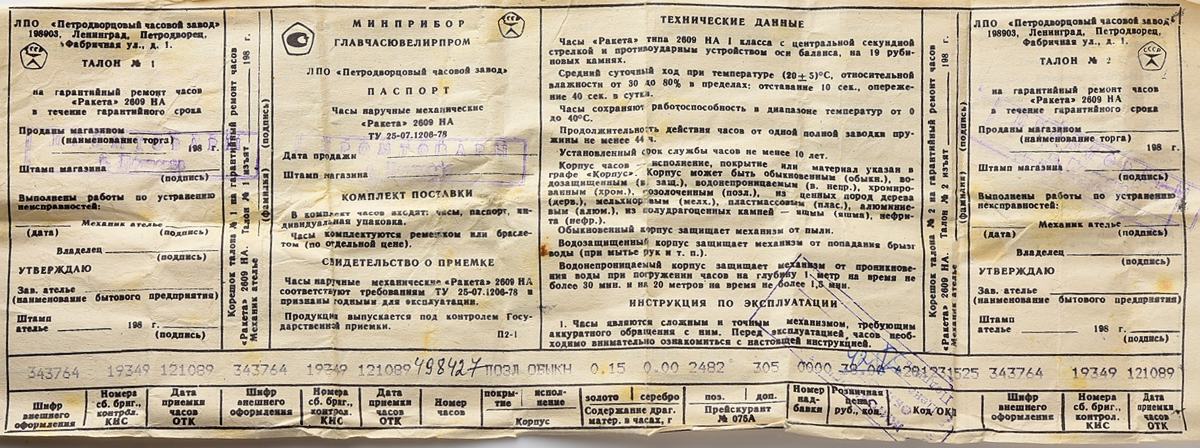 ЛПО «Петродворцовый часовой завод»
198903, Ленинград, Петродворец,
Фабричная ул., д. 1.
ТАЛОН № 1
на гарантийный ремонт часов
«Ракета» 2609 НА
в течение гарантийного срока
Проданы магазином
(наименование торга)
198 г.
Штамп магазина
(подпись)
Выполнены работы по устранению
неисправностей:
Механик ателье
(дата) (подпись)
Владелец
(подпись)
УТВЕРЖДАЮ
Зав. ателье
(наименование бытового предприятия)
Штамп
ателье 198 г.
(подпись)
Корешок талона № 1 на гарантийный ремонт часов
«Ракета» 2609 НА. Талон № 1 изъят 198 г.
Механик ателье
(фамилия) (подпись)
МИНПРИБОР
ГЛАВЧАСЮВЕЛИРПРОМ
СССР
ЛПО «Петродворцовый часовой завод»
ПАСПОРТ
Часы наручные механические
«Ракета» 2609 НА
ТУ 25-07.1206-78
Дата продажи
Штамп магазина
ПРОМТОВАРЫ
КОМПЛЕКТ ПОСТАВКИ
В комплект часов входят: часы, паспорт, ин-
дивидуальная упаковка.
Часы комплектуются ремешком или брасле-
том (по отдельной цене).
СВИДЕТЕЛЬСТВО О ПРИЕМКЕ
Часы наручные механические «Ракета» 2609 НА
соответствуют требованиям ТУ 25-07.1206-78 и
признаны годными для эксплуатации.
Продукция выпускается под контролем Госу-
дарственной приемки.
П2-1
ТЕХНИЧЕСКИЕ ДАННЫЕ
Часы «Ракета» типа 2609 НА I класса с центральной секундной
стрелкой и противоударным устройством оси баланса, на 19 руби-
новых камнях.
Средний суточный ход при температуре (20±5)°С, относительной
влажности от 30 до 80% в пределах: отставание 10 сек., опереже-
ние 40 сек. в сутки.
Часы сохраняют работоспособность в диапазоне температур от 0
до 40°С.
Продолжительность действия часов от одной полной заводки пру-
жины не менее 44 ч.
Установленный срок службы часов не менее 10 лет.
Корпус часов, исполнение, покрытие или материал указан в
графе «Корпус». Корпус может быть обыкновенным (обыкн.), во-
дозащищенным (в. защ.), водонепроницаемым (в. непр.), хромиро-
ванным (хром.), позолоченным (позл.), из ценных пород дерева
(дерв.), мельхиоровым (мелх.), пластмассовым (плас.), алюминие-
вым (алюм.), из полудрагоценных камней — яшмы (яшма), нефри-
та (нефр.).
Обыкновенный корпус защищает механизм от пыли.
Водозащищенный корпус защищает механизм от попадания брызг
воды (при мытье рук и т. п.).
Водонепроницаемый корпус защищает механизм от проникнове-
ния воды при погружении часов на глубину 1 метр на время не
более 30 мин. и на 20 метров на время не более 1,5 мин.
ИНСТРУКЦИЯ ПО ЭКСПЛУАТАЦИИ
1. Часы являются сложным и точным механизмом, требующим
аккуратного обращения с ним. Перед эксплуатацией часов необ-
ходимо внимательно ознакомиться с настоящей инструкцией.
Корешок талона № 2 на гарантийный ремонт часов
«Ракета» 2609 НА. Талон № 2 изъят 198 г.
Механик ателье
(фамилия) (подпись)
ЛПО «Петродворцовый часовой завод»
198903, Ленинград, Петродворец,
Фабричная ул., д. 1.
СССР
ТАЛОН № 2
на гарантийный ремонт часов
«Ракета» 2609 НА
в течение гарантийного срока
Проданы магазином
(наименование торга)
198 г.
Штамп магазина
(подпись)
Выполнены работы по устранению
неисправностей:
Механик ателье
(дата) (подпись)
Владелец
(подпись)
УТВЕРЖДАЮ
Зав. ателье
(наименование бытового предприятия)
Штамп
ателье 198 г.
(подпись)
343764 19349 121089 343764 19349 121089 498427 ПОЗЛ ОБЫКН 0.15 0.00 2482 305 0000 343764 19349 121089
Шифр внешнего оформления
Номера сб. бриг., контрол. КИС
Дата приемки часов ОТК
Шифр внешнего оформления
Номера сб. бриг., контрол. КИС
Дата приемки часов ОТК
Номер часов
покрытие исполнение
Корпус
золото серебро
Содержание драг. матер. в часах, г
поз. доп.
Прейскурант № 075А
Номер надбавки
Розничная цена, руб., коп.
Код ОКП
Шифр внешнего оформления
Номера сб. бриг., контрол. КИС
Дата приемки часов ОТК